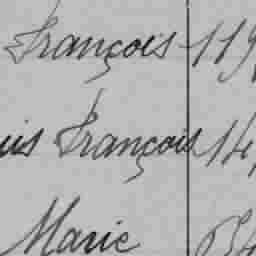 François 119
uis François 14
Marie